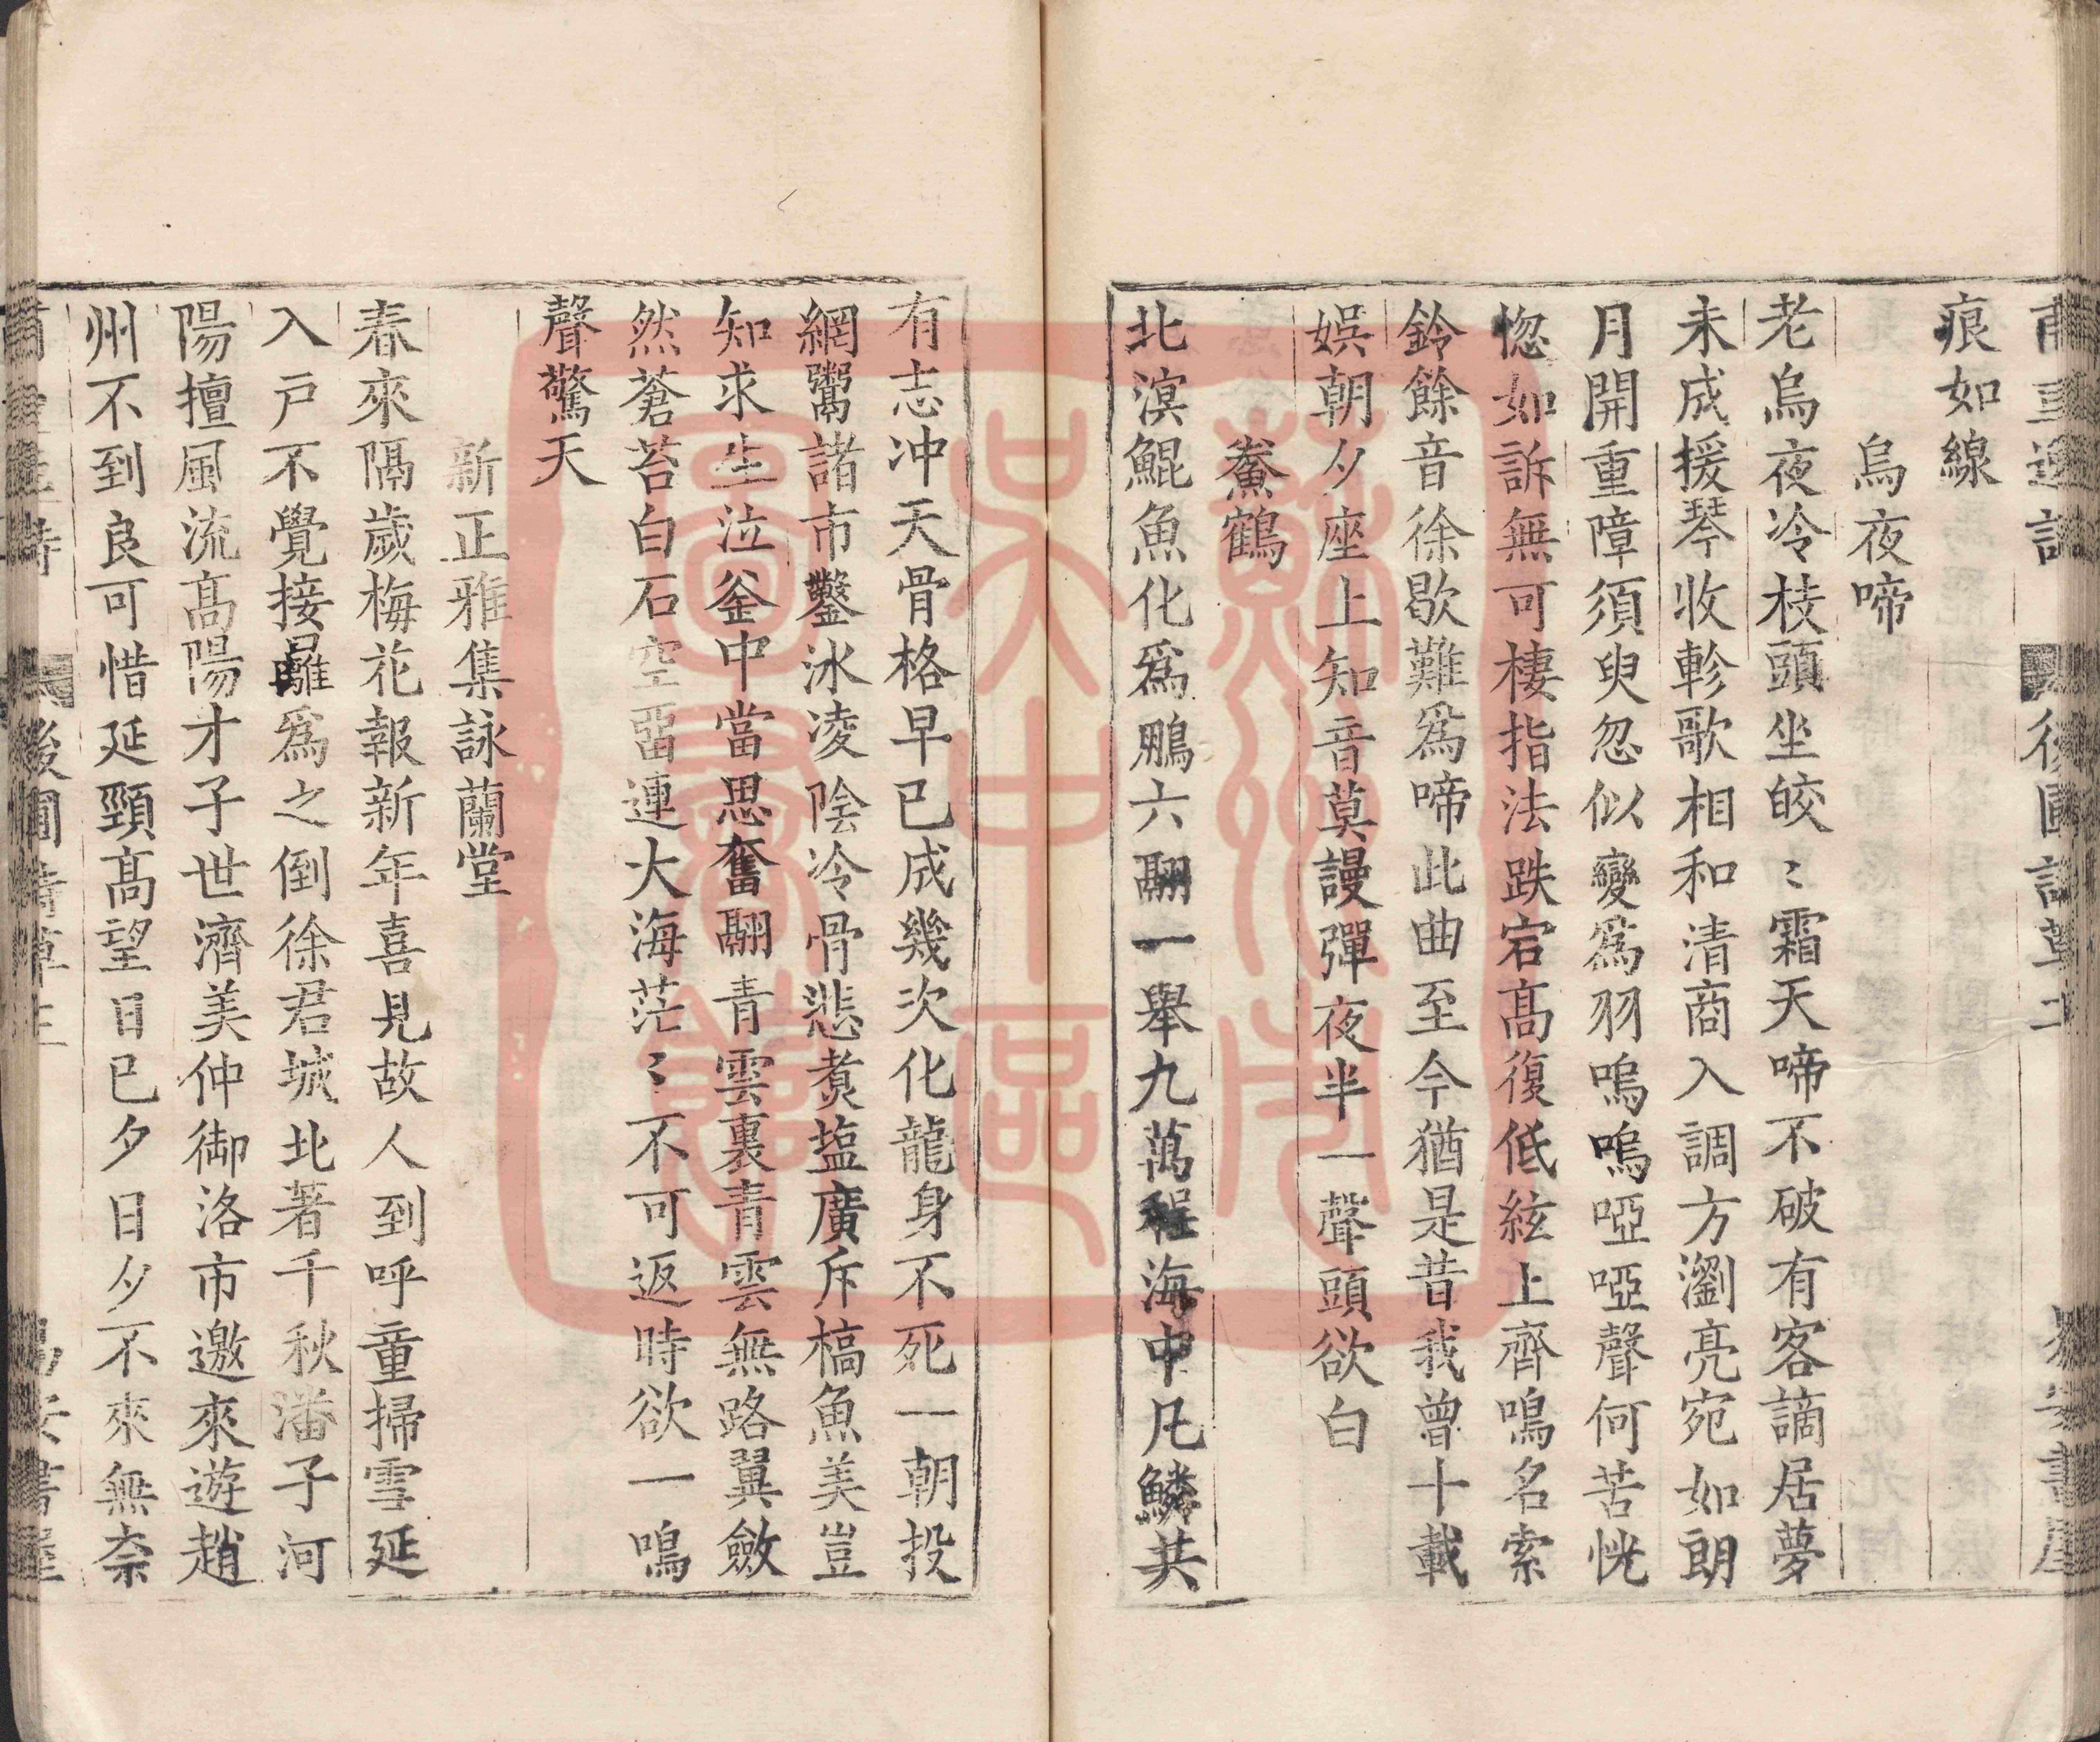 痕如線
烏夜啼
老烏夜冷枝頭坐皎〻霜天啼不破有客謫居夢
未成援琴收軫歌相和清商入調方瀏亮宛如朗
月開重障須臾忽似變爲羽嗚嗚啞啞聲何苦恍
惚如訴無可棲指法跌宕高復低絃上齊鳴名索
鈴餘音徐歇難爲啼此曲至今猶是昔我曾十載
娛朝夕座上知音莫謾彈夜半一聲頭欲白
鯗鶴
北溟鯤魚化爲鵬六翮一舉九萬程海中凡鱗共
有志冲天骨格早已成幾次化龍身不死一朝投
網鬻諸市鑿冰凌陰冷骨悲煑塩廣斥槁魚美豈
知求生泣釜中當思奮翮青雲裏青雲無路翼斂
然蒼苔白石空畱連大海茫〻不可返時欲一鳴
聲驚天
新正雅集詠蘭堂
春來隔歲梅花報新年喜見故人到呼童掃雪延
入戸不覺接䍦爲之倒徐君城北著千秋潘子河
陽擅風流高陽才子世濟美仲御洛市邀來遊趙
州不到良可惜延頸高望日已夕日夕不來無奈
後圃詩草